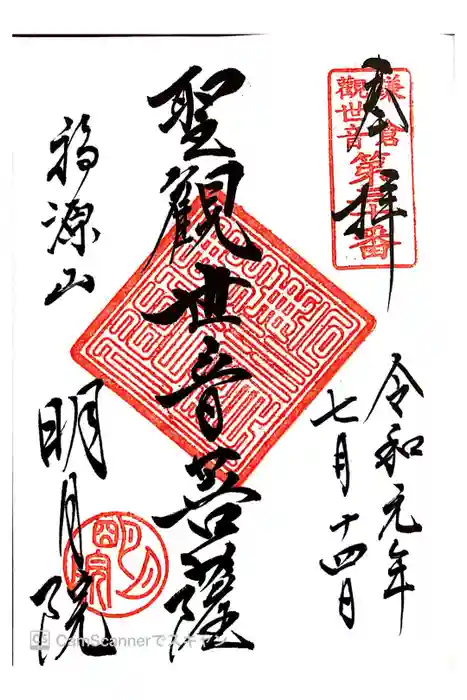 奉拝
鎌倉
觀世音
第 番
令和元年
七月十四日
聖觀世音菩薩
福源山
明月院
明月
院
CS CamScannerでスキャン